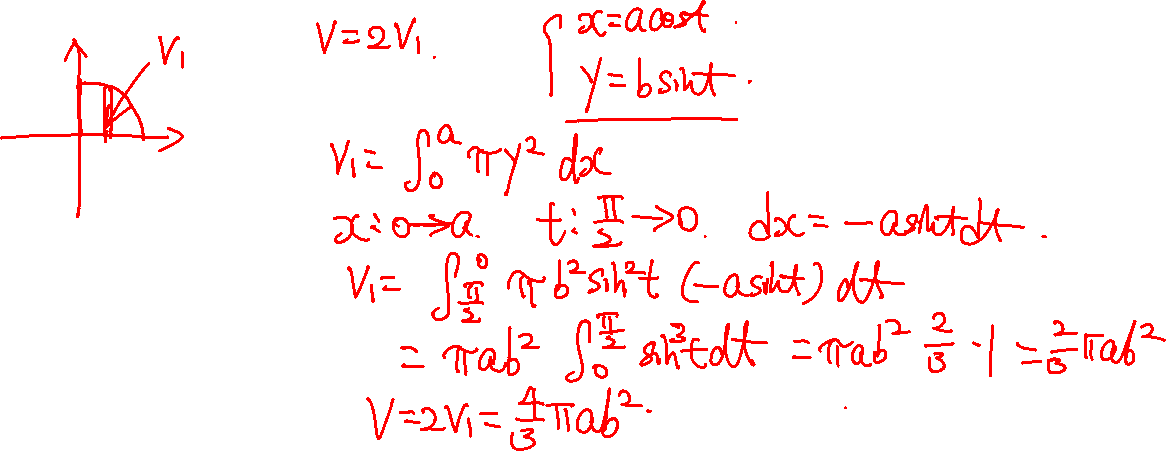 V₁
V=2V₁. { x=acost.
y=bsint.
V₁= ∫₀ᵃ πy² dx
x:0→a. t: π/2→0. dx=-asintdt.
V₁= ∫_{π/2}^{0} πb²sin²t (-asint) dt
= πab² ∫_{0}^{π/2} sin³tdt = πab² 2/3 ·1 = 2/3 πab²
V=2V₁= 4/3 πab².